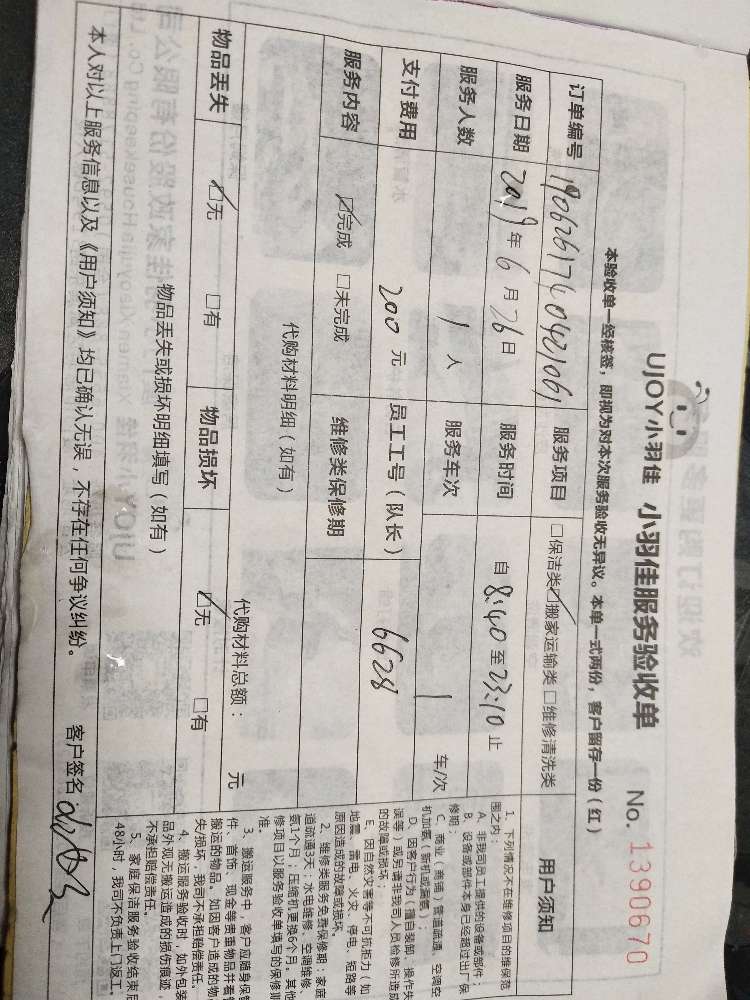 UJOY小羽佳 小羽佳服务验收单 No. 1390670
本验收单一经核签，即视为对本次服务验收无异议。本单一式两份，客户留存一份（红）
订单编号 19062617404421061 服务项目 □保洁类☑搬家运输类□维修清洗类
服务日期 2019年6月26日 服务时间 自8:40至23:10止
服务人数 1人 服务车次 1 车/次
支付费用 200元 员工工号（队长） 6628
服务内容 ☑完成 □未完成 维修类保修期
代购材料明细（如有）
代购材料总额： 元
物品丢失 ☑无 □有 物品损坏 ☑无 □有
物品丢失或损坏明细填写（如有）
本人对以上服务信息以及《用户须知》均已确认无误，不存在任何争议纠纷。 客户签名
用户须知
1、下列情况不在维修项目的维保范
围之内：
A、非我司员工提供的设备或部件；
B、设备或部件本身已经超过出厂保
修期；
C、商业（商铺）管道疏通、空调空
机加氨（新机或漏氨）；
D、因客户行为（擅自装卸、操作失
误等）或另请非我司人员检修所造成
的故障或损坏；
E、因自然灾害等不可抗拒力：如
地震、雷电、火灾、停电、短路等
原因造成的故障或损坏。
2、维修类服务免费保修期：家庭
道疏通3天；水电维修、空调维修、
氨1个月；压缩机更换6个月。其他
修项目以服务验收单填写的保修期
准。
3、搬运服务中，客户应随身保管
件、首饰、现金等贵重物品并看管
搬运的物品。如因客户造成的物
失/损坏，我司不承担赔偿责任。
4、搬运服务验收时，如外包装
品外观无搬运造成的损伤痕迹，
不承担赔偿责任。
5、家庭保洁服务验收结束后
48小时，我司不负责上门返工。